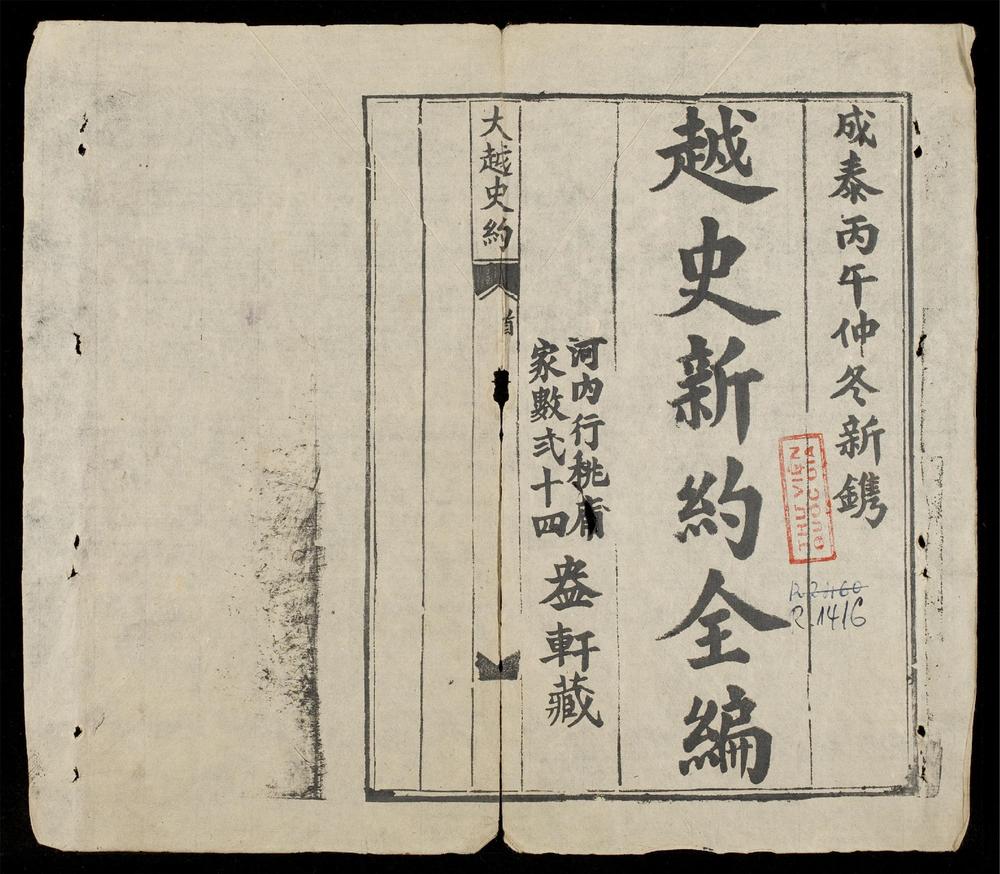 成泰丙午仲冬新鐫
越史新約全編
河内行桃庯
家數弍十四
盎軒藏
大越史約
首
THƯ VIỆN
QUỐC GIA
R.1416